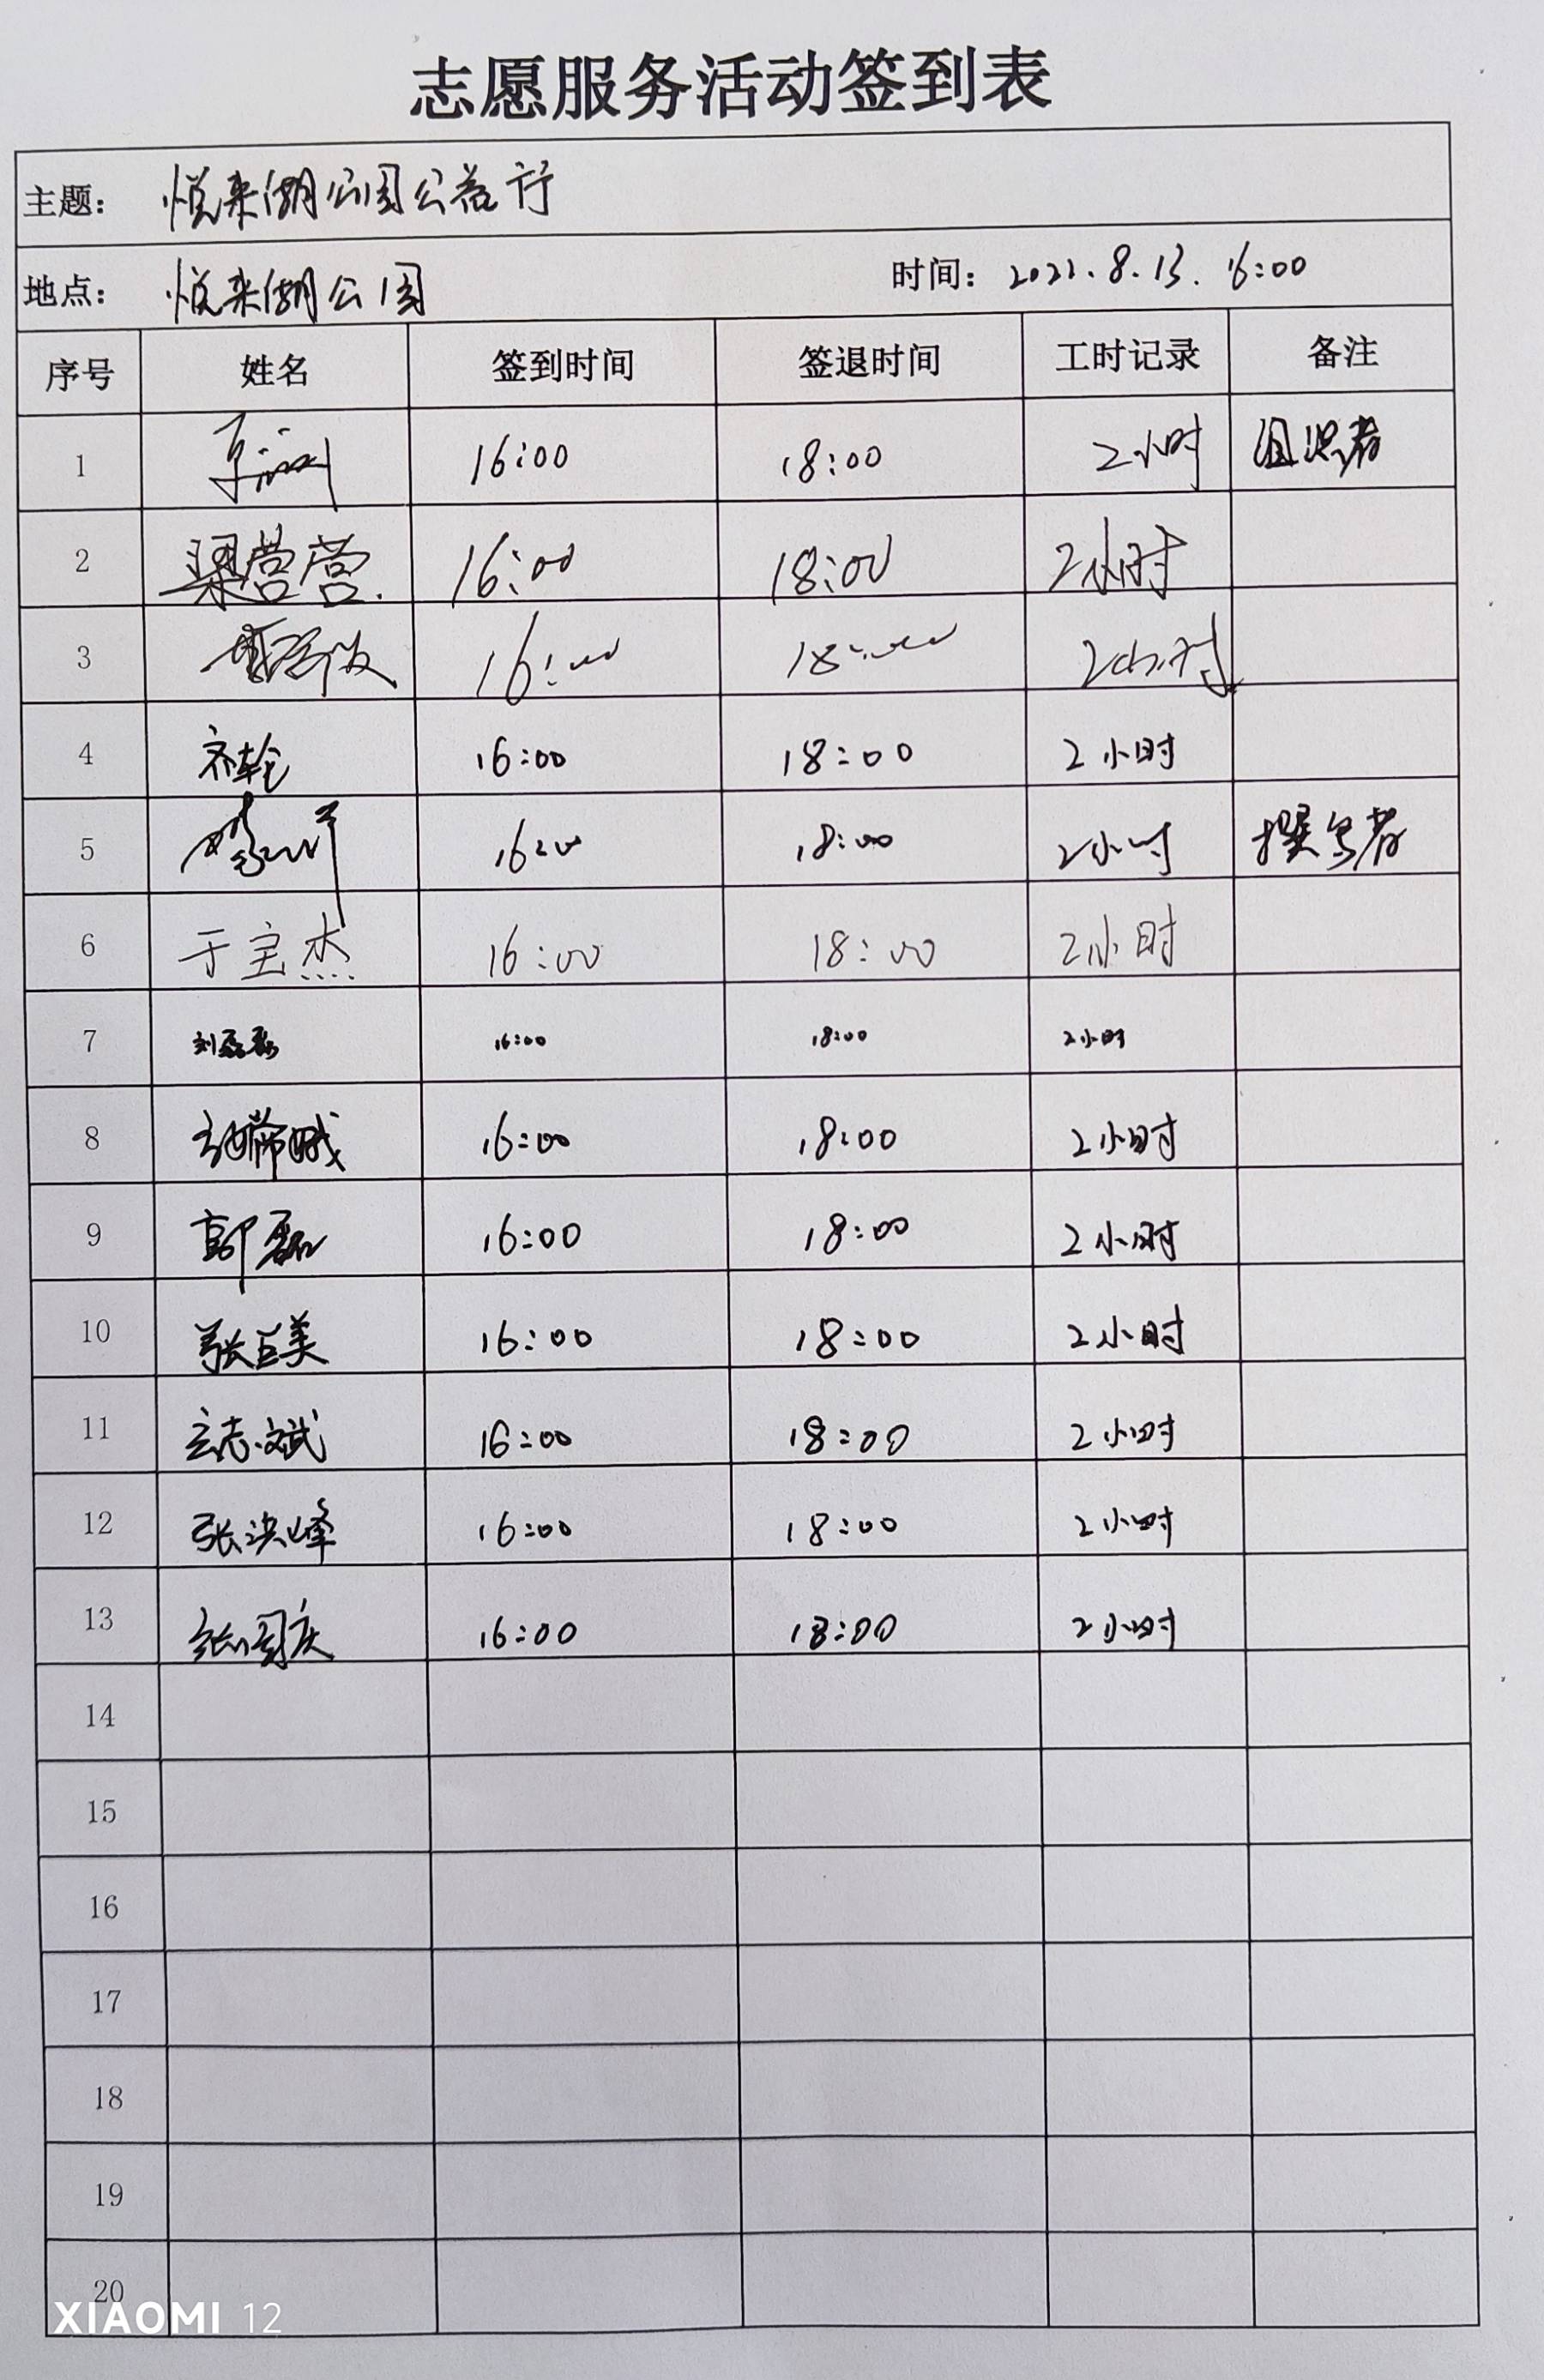 志愿服务活动签到表
主题： 悦来湖公园公益行
地点： 悦来湖公园 时间：2022.8.13. 16:00
序号 姓名 签到时间 签退时间 工时记录 备注
1 16:00 18:00 2小时 组织者
2 梁营营. 16:00 18:00 2小时
3 16:00 18:00 2小时
4 齐轮 16:00 18:00 2小时
5 16:00 18:00 2小时 撰写者
6 于宝杰 16:00 18:00 2小时
7 刘磊磊 16:00 18:00 2小时
8 16:00 18:00 2小时
9 郭磊 16:00 18:00 2小时
10 张巨美 16:00 18:00 2小时
11 志斌 16:00 18:00 2小时
12 张洪峰 16:00 18:00 2小时
13 张国庆 16:00 18:00 2小时
14
15
16
17
18
19
20
XIAOMI 12